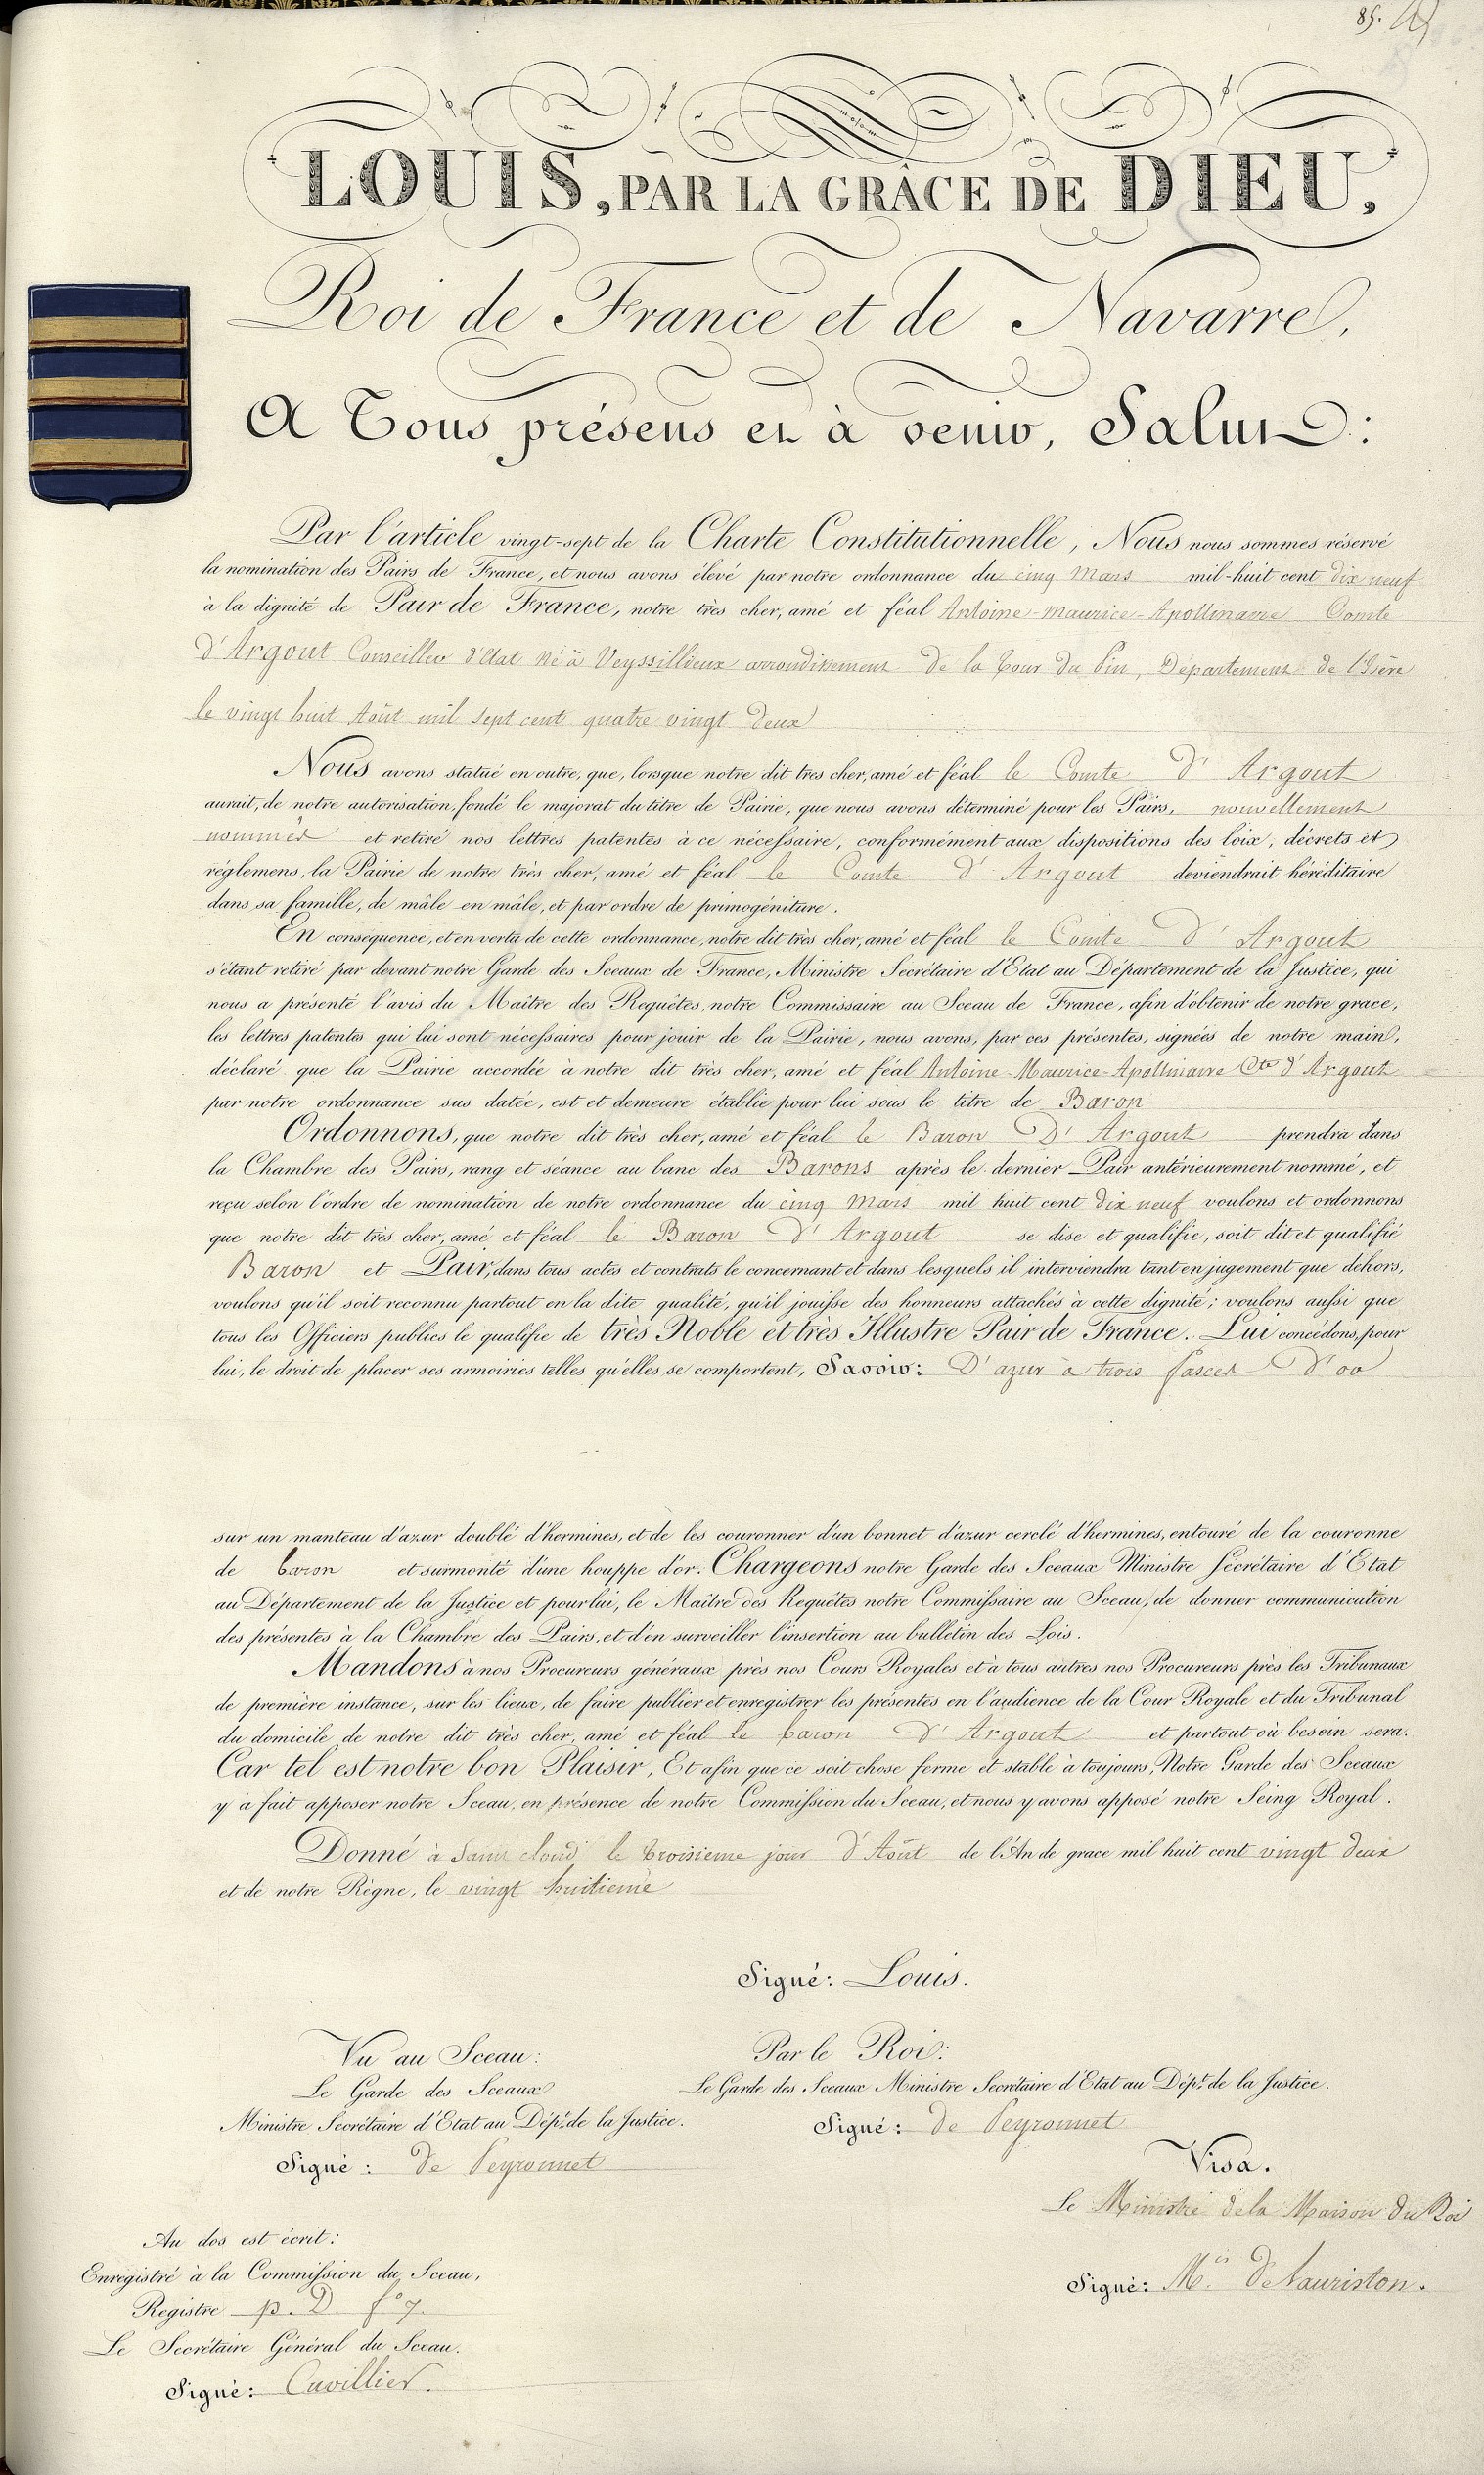 85.
LOUIS, PAR LA GRÂCE DE DIEU,
Roi de France et de Navarre,
A Tous présens et à venir, Salut:
Par l'article vingt-sept de la Charte Constitutionnelle, Nous nous sommes réservé
la nomination des Pairs de France, et nous avons élevé par notre ordonnance du cinq Mars mil-huit cent dix neuf
à la dignité de Pair de France, notre très cher, amé et féal Antoine-Maurice-Apollinaire Comte
d'Argout Conseiller d'Etat né à Veyssillieux arrondissement de la Tour du Pin, Département de l'Isère
le vingt huit Août mil sept cent quatre vingt deux
Nous avons statué en outre, que, lorsque notre dit très cher, amé et féal le Comte d'Argout
aurait, de notre autorisation, fondé le majorat du titre de Pairie, que nous avons déterminé pour les Pairs, nouvellement
nommés et retiré nos lettres patentes à ce nécessaire, conformément aux dispositions des loix, décrets et
réglemens, la Pairie de notre très cher, amé et féal le Comte d'Argout deviendrait héréditaire
dans sa famille, de mâle en mâle, et par ordre de primogéniture.
En conséquence, et en vertu de cette ordonnance, notre dit très cher, amé et féal le Comte d'Argout
s'étant retiré par devant notre Garde des Sceaux de France, Ministre Secrétaire d'Etat au Département de la Justice, qui
nous a présenté l'avis du Maître des Requêtes, notre Commissaire au Sceau de France, afin d'obtenir de notre grace,
les lettres patentes qui lui sont nécessaires pour jouir de la Pairie, nous avons, par ces présentes, signées de notre main,
déclaré que la Pairie accordée à notre dit très cher, amé et féal Antoine-Maurice-Apollinaire Cte d'Argout
par notre ordonnance sus datée, est et demeure établie pour lui sous le titre de Baron
Ordonnons, que notre dit très cher, amé et féal le Baron D'Argout prendra dans
la Chambre des Pairs, rang et séance au banc des Barons après le dernier Pair antérieurement nommé, et
reçu selon l'ordre de nomination de notre ordonnance du cinq Mars mil huit cent dix neuf voulons et ordonnons
que notre dit très cher, amé et féal le Baron d'Argout se dise et qualifie, soit dit et qualifié
Baron et Pair, dans tous actes et contrats le concernant et dans lesquels il interviendra tant en jugement que dehors,
voulons qu'il soit reconnu partout en la dite qualité, qu'il jouisse des honneurs attachés à cette dignité; voulons aussi que
tous les Officiers publics le qualifie de très Noble et très Illustre Pair de France. Lui concédons, pour
lui, le droit de placer ses armoiries telles qu'elles se comportent, Savoir: D'azur à trois fasces D'or
sur un manteau d'azur doublé d'hermines, et de les couronner d'un bonnet d'azur cerclé d'hermines, entouré de la couronne
de baron et surmonté d'une houppe d'or. Chargeons notre Garde des Sceaux Ministre Secrétaire d'Etat
au Département de la Justice et pour lui, le Maître des Requêtes notre Commissaire au Sceau, de donner communication
des présentes à la Chambre des Pairs, et d'en surveiller l'insertion au bulletin des Lois.
Mandons à nos Procureurs généraux près nos Cours Royales et à tous autres nos Procureurs près les Tribunaux
de première instance, sur les lieux, de faire publier et enregistrer les présentes en l'audience de la Cour Royale et du Tribunal
du domicile de notre dit très cher, amé et féal le baron d'Argout et partout où besoin sera.
Car tel est notre bon Plaisir, Et afin que ce soit chose ferme et stable à toujours, Notre Garde des Sceaux
y a fait apposer notre Sceau, en présence de notre Commission du Sceau, et nous y avons apposé notre Seing Royal.
Donné à Saint cloud le troisieme jour d'Août de l'An de grace mil huit cent vingt deux
et de notre Règne, le vingt huitieme
Signé: Louis.
Vu au Sceau:
Le Garde des Sceaux
Ministre Secrétaire d'Etat au Dépt. de la Justice.
Signé: de Peyronnet
Par le Roi:
Le Garde des Sceaux Ministre Secrétaire d'Etat au Dépt. de la Justice.
Signé: de Peyronnet
Visa.
Le Ministre de la Maison du Roi
Signé: Mis. De Lauriston.
Au dos est écrit:
Enregistré à la Commission du Sceau,
Registre p. D. fo 7.
Le Secrétaire Général du Sceau.
Signé: Cuvillier.